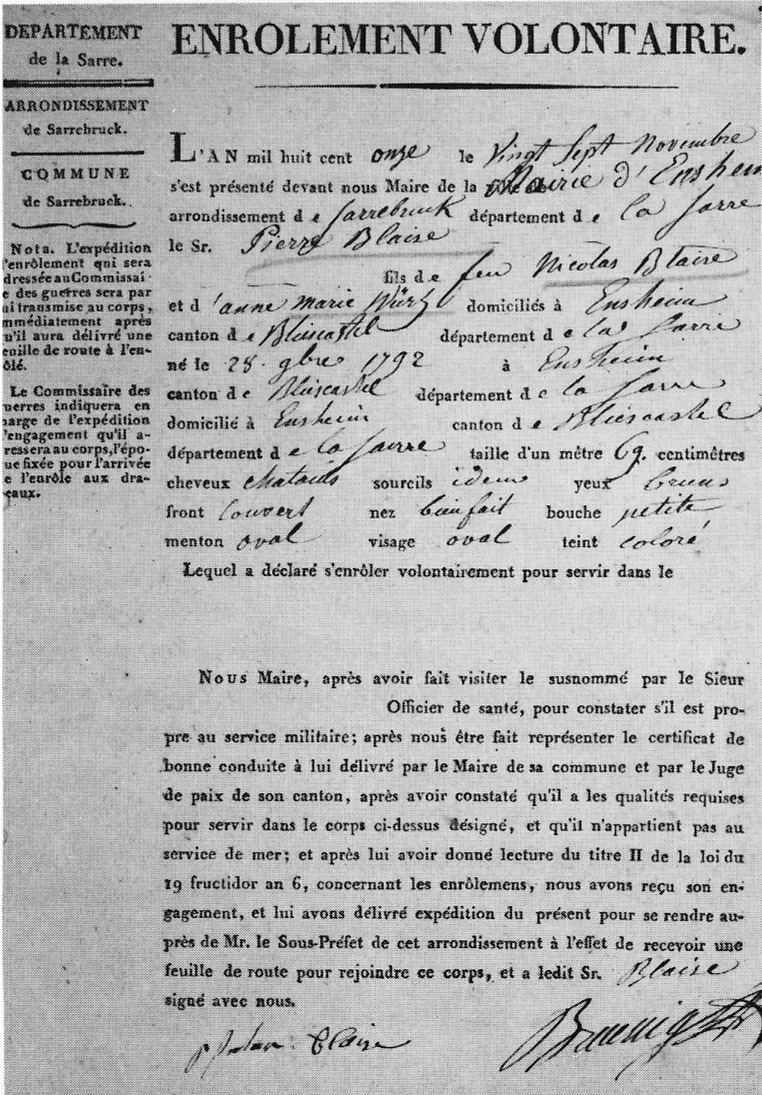 DEPARTEMENT
de la Sarre.
ARRONDISSEMENT
de Sarrebruck.
COMMUNE
de Sarrebruck.
Nota. L'expédition
l'enrôlement qui sera
dressée au Commissai-
e des guerres sera par
ui transmise au corps,
mmédiatement après
u'il aura délivré une
euille de route à l'en-
ôlé.
Le Commissaire des
uerres indiquera en
arge de l'expédition
'engagement qu'il a-
ressera au corps, l'épo-
ue fixée pour l'arrivée
e l'enrôle aux dra-
eaux.
ENROLEMENT VOLONTAIRE.
L'AN mil huit cent onze le Vingt Sept Novembre
s'est présenté devant nous Maire de la Mairie d'Ensheim
arrondissement de Sarrebruck département de la Sarre
le Sr. Pierre Blaise
fils de feu Nicolas Blaise
et d'anne Marie Würtz domiciliés à Ensheim
canton de Bliescastel département de la Sarre
né le 28. 9bre 1792 à Ensheim
canton de Bliescastel département de la Sarre
domicilié à Ensheim canton de Bliescastel
département de la Sarre taille d'un mètre 69. centimètres
cheveux chatains sourcils idem yeux bruns
front Couvert nez bienfait bouche petite
menton oval visage oval teint coloré
Lequel a déclaré s'enrôler volontairement pour servir dans le
Nous Maire, après avoir fait visiter le susnommé par le Sieur
Officier de santé, pour constater s'il est pro-
pre au service militaire; après nous être fait représenter le certificat de
bonne conduite à lui délivré par le Maire de sa commune et par le Juge
de paix de son canton, après avoir constaté qu'il a les qualités requises
pour servir dans le corps ci-dessus désigné, et qu'il n'appartient pas au
service de mer; et après lui avoir donné lecture du titre II de la loi du
19 fructidor an 6, concernant les enrôlemens, nous avons reçu son en-
gagement, et lui avons délivré expédition du présent pour se rendre au-
près de Mr. le Sous-Préfet de cet arrondissement à l'effet de recevoir une
feuille de route pour rejoindre ce corps, et a ledit Sr. Blaise
signé avec nous.
Blaise